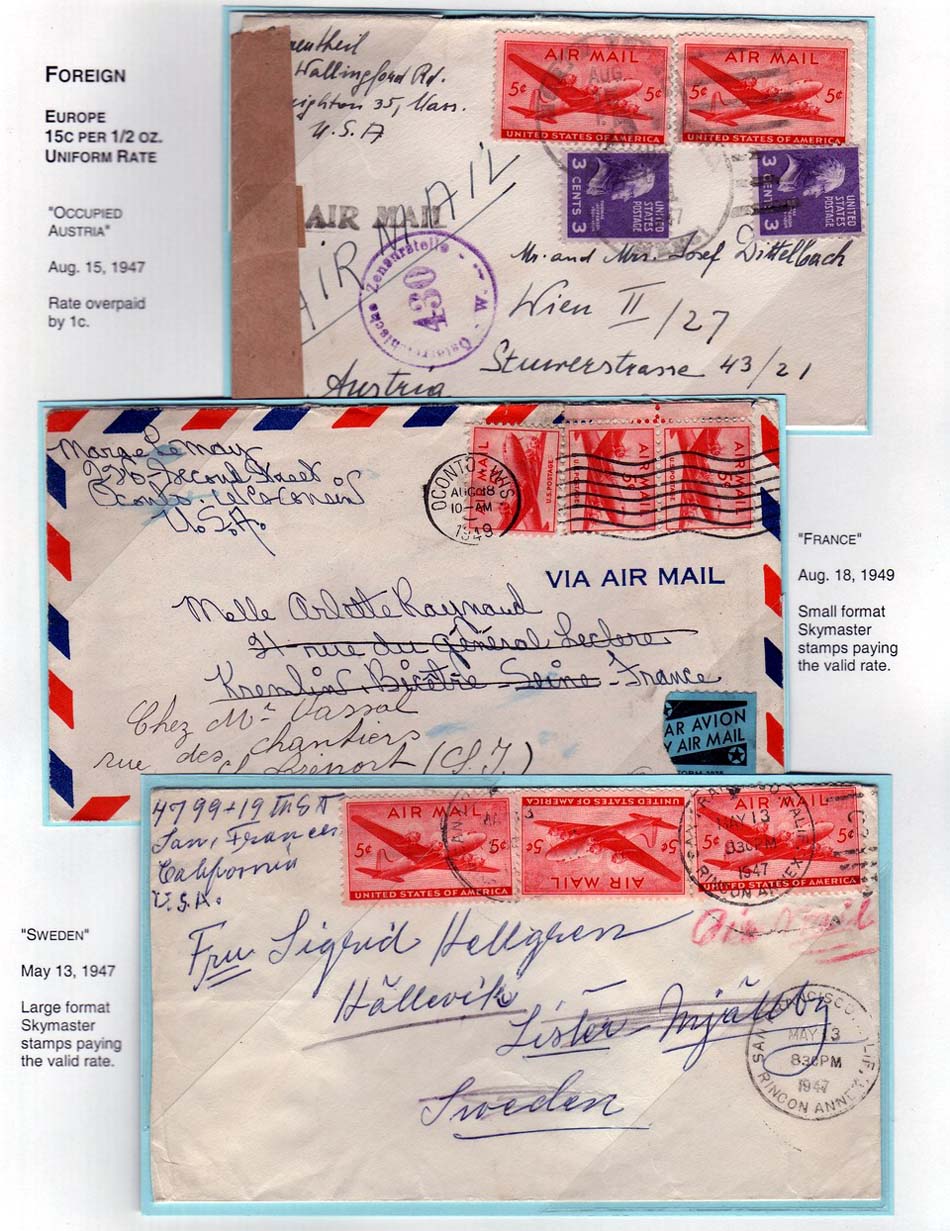 FOREIGN
EUROPE
15C PER 1/2 OZ.
UNIFORM RATE
"OCCUPIED
AUSTRIA"
Aug. 15, 1947
Rate overpaid
by 1c.
Wallingford Rd.
35, Mass.
U.S.A
AIR MAIL
5¢ 5¢
UNITED STATES OF AMERICA
AIR MAIL
5¢ 5¢
UNITED STATES OF AMERICA
UNITED STATES POSTAGE
3 CENTS 3
UNITED STATES POSTAGE
3 CENTS 3
AUG
AIR MAIL
AIR MAIL
Österreichische Zensurstelle - W.
430
Mr. and Mrs. Josef Dittelbach
Wien II /27
Stuwerstrasse 43/21
Austria
Marge Le May
Second Street
Oconto Wisconsin
U.S.A.
OCONTO, WIS.
AUG 18
10-AM
1949
AIR MAIL
U.S. POSTAGE
AIR MAIL
U.S. POSTAGE
AIR MAIL
U.S. POSTAGE
VIA AIR MAIL
Melle Arlette Raynaud
rue du Général Leclerc
Kremlin-Bicêtre Seine France
Chez Mr Vassal
rue des chantiers
PAR AVION
BY AIR MAIL
"FRANCE"
Aug. 18, 1949
Small format
Skymaster
stamps paying
the valid rate.
4799-19th St
San Francisco
California
U.S.A.
AIR MAIL
5¢ 5¢
UNITED STATES OF AMERICA
UNITED STATES OF AMERICA
5¢ 5¢
AIR MAIL
AIR MAIL
5¢ 5¢
UNITED STATES OF AMERICA
SAN FRANCISCO, CALIF.
MAY 13
830PM
1947
RINCON ANNEX
Air Mail
Fru Sigrid Hellgren
Hällevik
Lister-Mjällby
Sweden
SAN FRANCISCO, CALIF.
MAY 13
830PM
1947
RINCON ANNEX
"SWEDEN"
May 13, 1947
Large format
Skymaster
stamps paying
the valid rate.